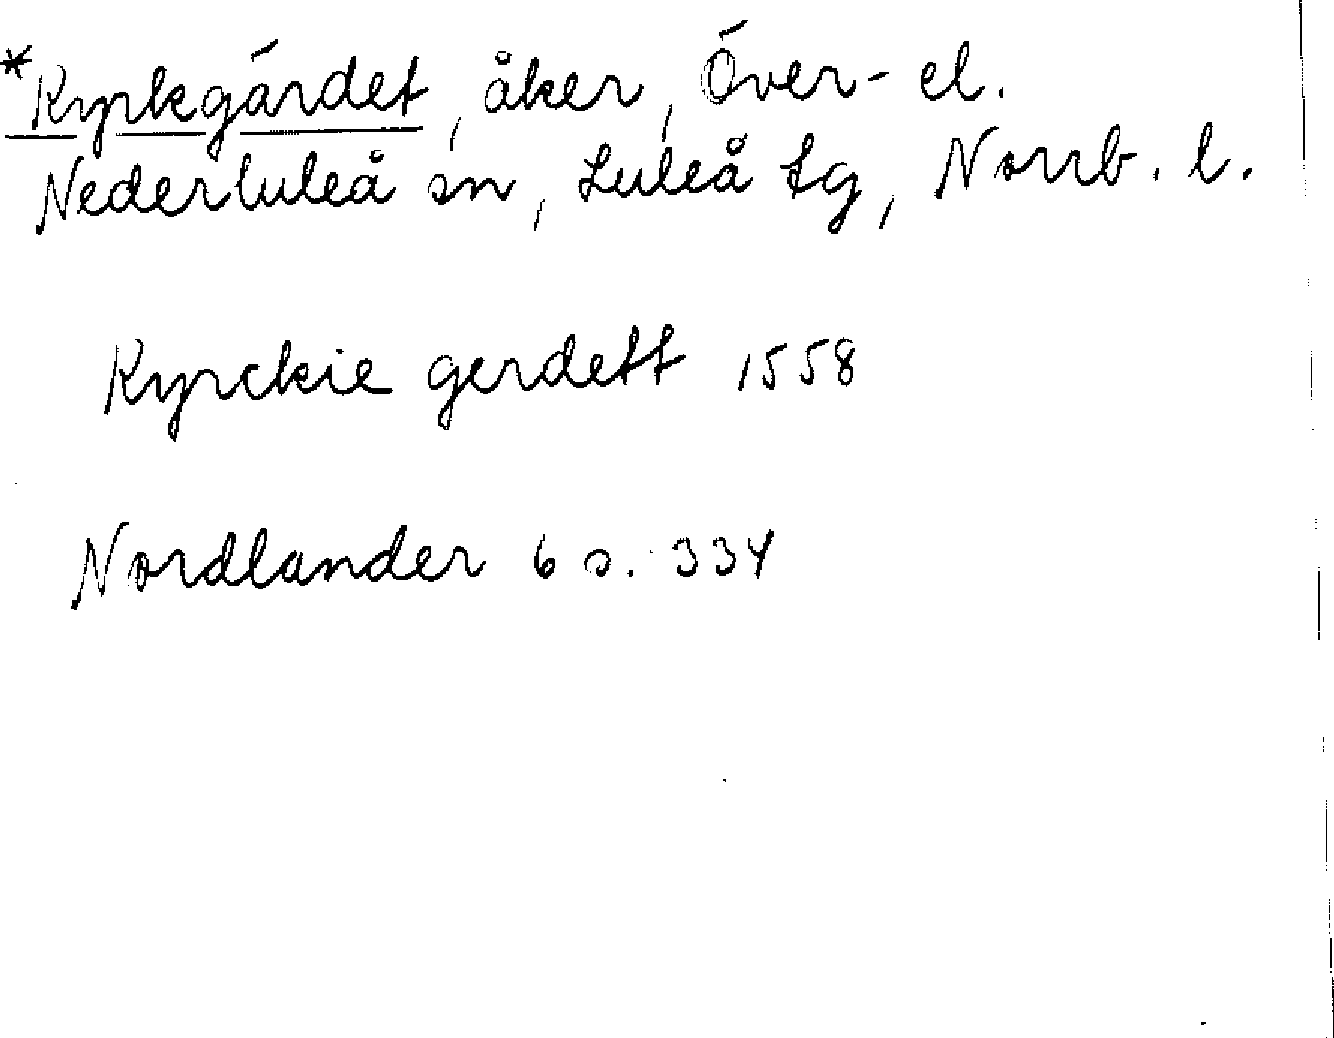 *Kyrkgärdet, åker, Över- el.
Nederluleå sn, Luleå tg, Norrb. l.
Kyrckie gerdett 1558
Nordlander 6 s. 334